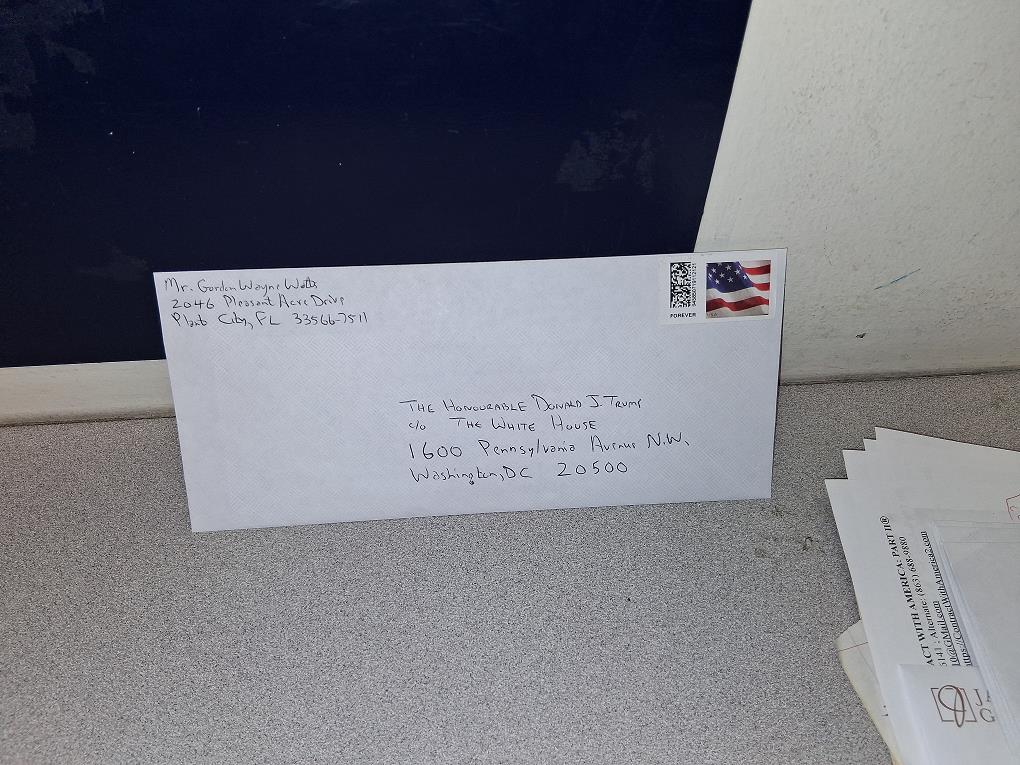 Mr. Gordon Wayne Watts
2046 Pleasant Acre Drive
Plant City, FL 33566-7511
FOREVER
USA
THE HONOURABLE DONALD J. TRUMP
c/o THE WHITE HOUSE
1600 Pennsylvania Avenue N.W.
Washington, DC 20500
ACT WITH AMERICA: PART II®
5141 : Alternate: (863) 688-9880
@GMail.com
https://ContractWithAmerica2.com
JA
G